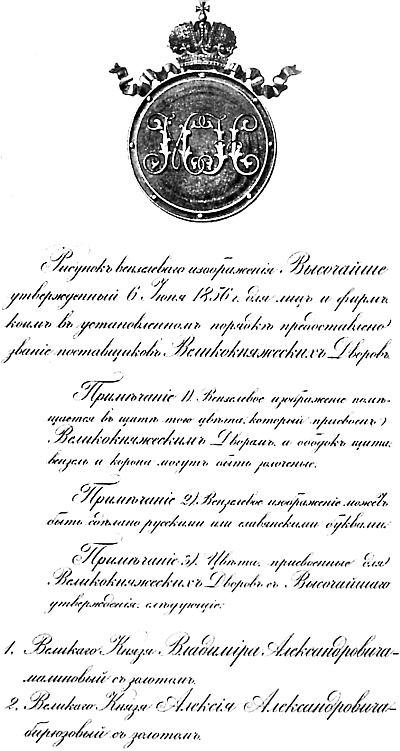 Рисунокъ вензелеваго изображенія Высочайше
утвержденный 6 Іюня 1856 г. для лицъ и фирмъ
коимъ въ установленномъ порядкѣ предоставлено
званіе поставщиковъ Великокняжескихъ Дворовъ.
Примѣчаніе 1). Вензелевое изображеніе помѣ-
щается въ щитѣ того цвѣта, который присвоенъ
Великокняжескимъ Дворамъ, и ободокъ щита,
вензель и корона могутъ быть золоченые.
Примѣчаніе 2). Вензелевое изображеніе можетъ
быть сдѣлано русскими или славянскими буквами.
Примѣчаніе 3). Цвѣта, присвоенные для
Великокняжескихъ Дворовъ съ Высочайшаго
утвержденія, слѣдующіе:
1. Великаго Князя Владиміра Александровича-
малиновый съ золотомъ.
2. Великаго Князя Алексія Александровича-
бирюзовый съ золотомъ.